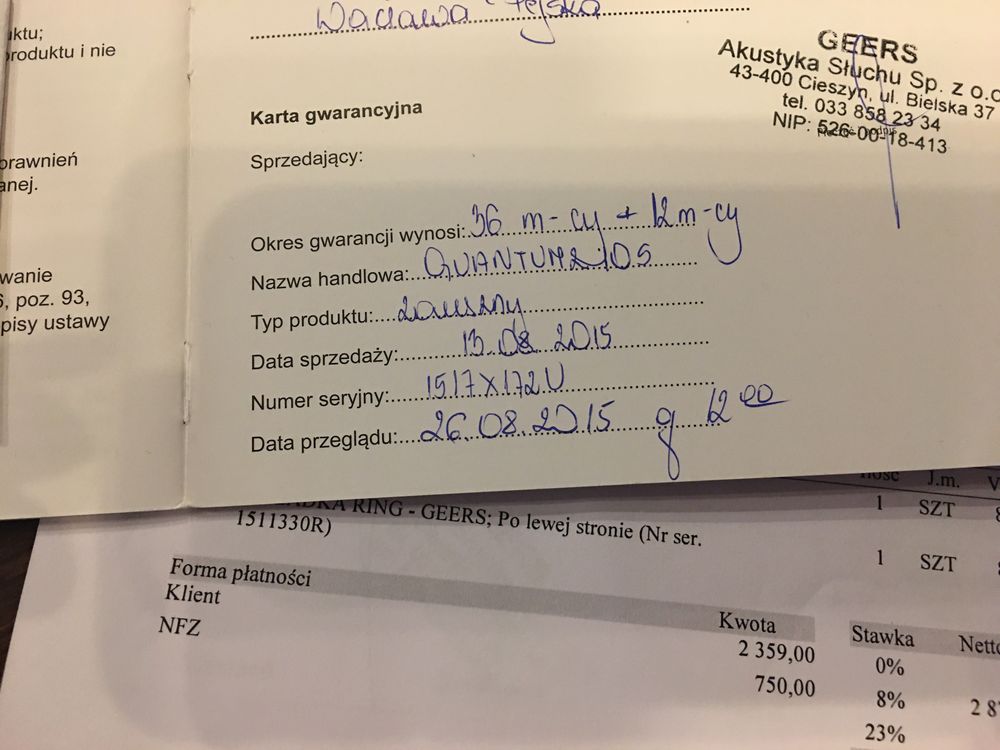 uktu;
produktu i nie
prawnień
anej.
wanie
6, poz. 93,
pisy ustawy
Wacława
GEERS
Akustyka Słuchu Sp. z o.o
43-400 Cieszyn, ul. Bielska 37
tel. 033 858 23 34
NIP: 526-00-18-413
Karta gwarancyjna
Sprzedający:
Okres gwarancji wynosi: 36 m-cy + 12 m-cy
Nazwa handlowa: QUANTUM2 10S
Typ produktu: zauszny
Data sprzedaży: 13.08.2015
Numer seryjny: 1517X172U
Data przeglądu: 26.08.2015 g 12 00
Ilość J.m. V
RING - GEERS; Po lewej stronie (Nr ser. 1 SZT
1511330R) 1 SZT
Forma płatności Kwota Stawka Netto
Klient 2 359,00 0%
NFZ 750,00 8% 2 87
23%